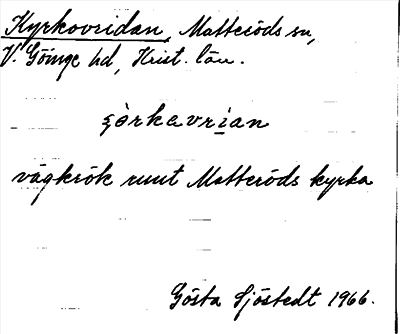 Kyrkovridan, Matteröds sn,
V. Göinge hd, Krist. län.
ȿörkavrian
vägkrök runt Matteröds kyrka
Gösta Sjöstedt 1966.